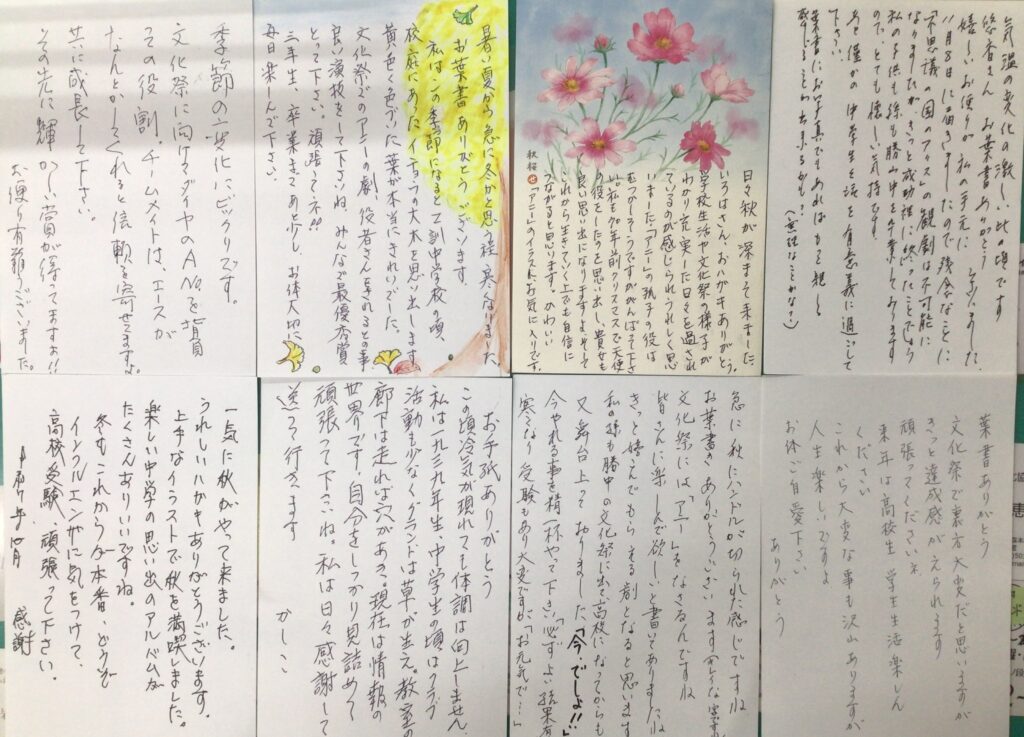 気温の変化の激しい此の頃です
悠香さん お葉書ありがとう
嬉しいお便りが私の手元に
11月8日に届きましたので残念なことに
「不思議の国のアリス」の観劇は不可能に
なりましたが、きっと成功裡に終ったことでしょう
私の子供も孫も勝山中を卒業しております
ので、とても懐しい気持です。
あと僅かの中学生生活を有意義に過して
下さい。
葉書にお写真でもあればもっと親しく
(無理なことかな?)
日々秋が深まって来ました。
いろはさん、おハガキありがとう。
学校生活や文化祭の様子が
わかり充実した日々を過され
ているのが感じられうれしく思
いました。「アニー」の孤子の役は
むつかしそうですががんばって下さ
い。私も70年前クリスマスで天使
の役をしたのを思い出し、貴女も
良い思い出になりますよ。そして
これから生きていく上でも自信に
つながると思います。かわいい
「アニー」のイラストお気に入りです。
秋桜
暑い夏から急に冬かと思う程、寒くなりました。
お葉書ありがとうございます。
私はこの季節になると 中学校の頃、
校庭にあったイチョウの大木を思い出します
黄色く色づいた葉が本当にきれいでした。
文化祭でのアニーの劇、役者さんをされるとの事
良い演技をして下さいね、みんなで最優秀賞
とって下さい。頑張ってネ!!
三年生、卒業まであと少し、お体大切に
毎日楽しんで下さい。
季節の変化にビックリです。
文化祭に向けてダイヤのA No.を背負
っての役割。チームメイトは、エースが
なんとかしてくれると信頼を寄せてますよ。
共に成長して下さい。
その先に輝かしい賞が待ってますよ!!
お便り有難うございました。
葉書ありがとう
文化祭で裏方大変だと思いますが
きっと達成感がえられます
頑張ってくださいネ
来年は高校生 学生生活楽しん
ください
これから大変な事も沢山ありますが
人生楽しいですよ
お体ご自愛下さい
ありがとう
急に秋にハンドルが切られた感じですね
お葉書きありがとうございます
文化祭には、「アニー」をなさるんですね
皆さんに楽しんで欲しいと書いてありましたね
きっと喜んでもらえる劇となると思います
私の娘も勝中の文化祭に出て高校になってからも
又、舞台上っておりました「今でしょ!!」
今やれる事を精一杯やって下さい必ずよい結果有
寒くなり受験もあり大変ですが、お元気で…」
お手紙ありがとう
この頃冷気が現れても体調は向上しません。
私は一九三九年生、中学生の頃はクラブ
活動も少なくグランドは草が生え。教室の
廊下は走れば穴があき。現在は情報の
世界です。自分をしっかり見詰めて
頑張って下さいね。私は日々感謝して
送って行きます
かしこ
一気に秋がやって来ました。
うれしいハガキありがとうございます。
上手なイラストで秋を満喫しました。
楽しい中学の思い出のアルバムが
たくさんありいいですね。
冬もこれからが本番、どうぞ
インフルエンザに気をつけて、
高校受験、頑張って下さい。
感謝